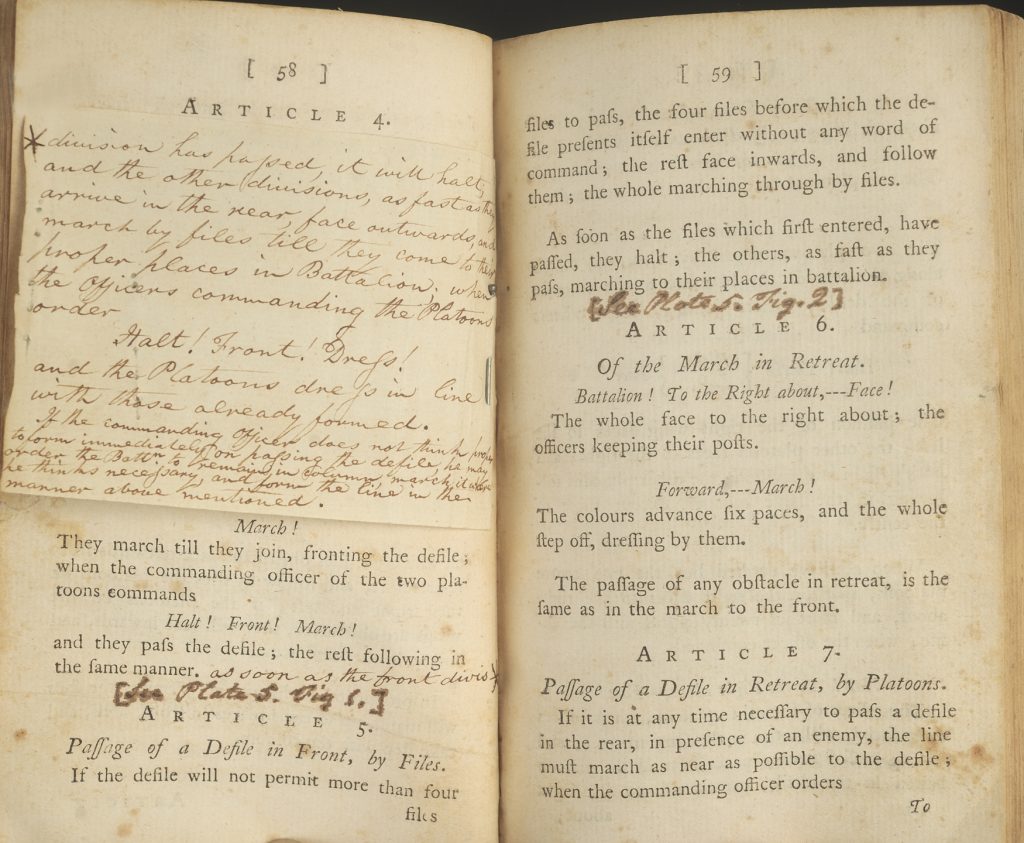 [ 58 ]
ARTICLE 4.
* division has passed, it will halt,
and the other divisions, as fast as they
arrive in the rear, face outwards, and
march by files till they come to their
proper places in Battalion; when
the Officers commanding the Platoons
order
Halt! Front! Dress!
and the Platoons dress in line
with those already formed.
If the commanding Officer does not think proper
to form immediately on passing the defile, he may
order the Battn to remain in column, march it where
he thinks necessary, and form the line in the
manner above mentioned.
March!
They march till they join, fronting the defile;
when the commanding officer of the two pla-
toons commands
Halt! Front! March!
and they paſs the defile; the reſt following in
the ſame manner. as soon as the front divis *
[See Plate 5. Fig 1.]
ARTICLE 5.
Paſſage of a Defile in Front, by Files.
If the defile will not permit more than four
files
[ 59 ]
files to paſs, the four files before which the de-
file preſents itſelf enter without any word of
command; the reſt face inwards, and follow
them; the whole marching through by files.
As ſoon as the files which firſt entered, have
paſſed, they halt; the others, as faſt as they
paſs, marching to their places in battalion.
[See Plate 5. Fig. 2]
ARTICLE 6.
Of the March in Retreat.
Battalion! To the Right about,---Face!
The whole face to the right about; the
officers keeping their poſts.
Forward,---March!
The colours advance ſix paces, and the whole
ſtep off, dreſſing by them.
The paſſage of any obſtacle in retreat, is the
ſame as in the march to the front.
ARTICLE 7.
Paſſage of a Defile in Retreat, by Platoons.
If it is at any time neceſſary to paſs a defile
in the rear, in preſence of an enemy, the line
muſt march as near as poſſible to the defile;
when the commanding officer orders
To